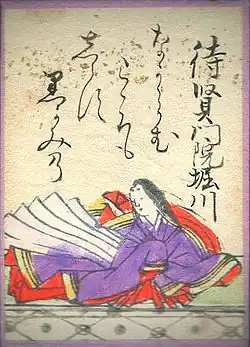 待賢門院堀川
なかからむ
こゝろも
志らす
黒かみ乃